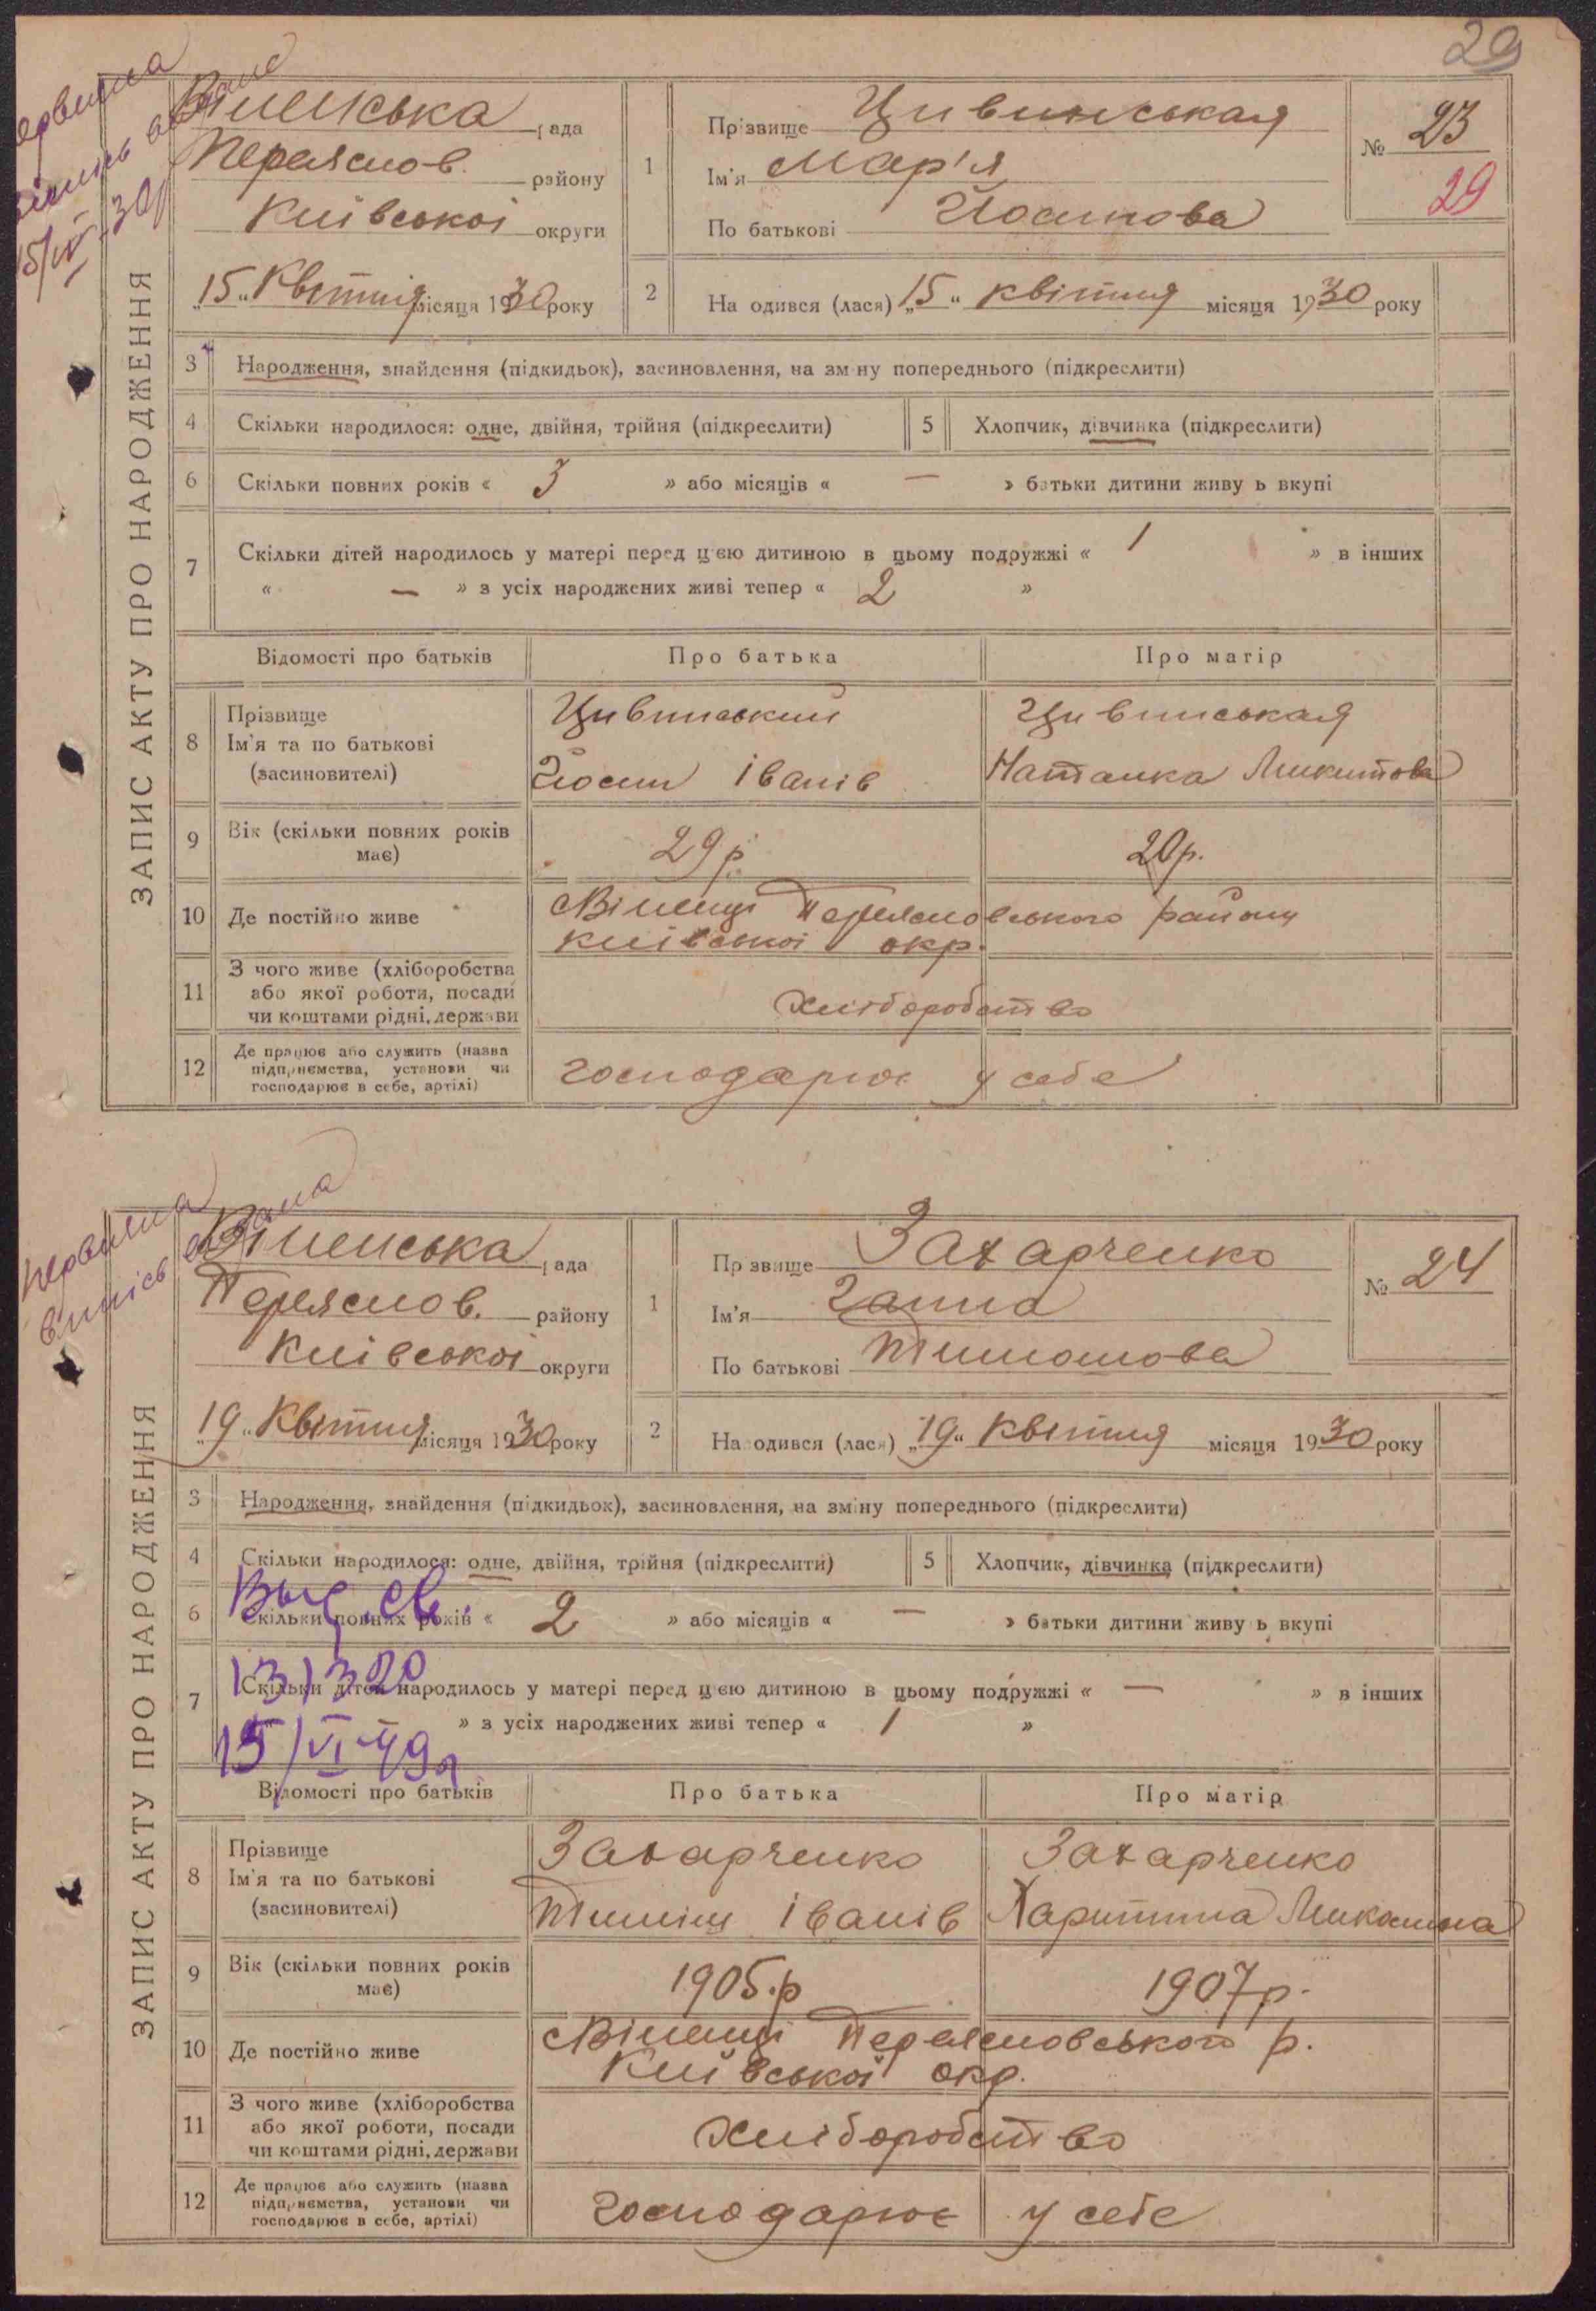 29
ЗАПИС АКТУ ПРО НАРОДЖЕННЯ
Віненська рада
Переяслов. району
Київської округи
„15" Квітня місяця 1930 року
1 Прізвище Цивинськая
Ім'я Мар'я
По батькові Йосипова
№ 23
29
2 Народився (лася) „15" квітня місяця 1930 року
3 Народження, знайдення (підкидьок), засиновлення, на зміну попереднього (підкреслити)
4 Скільки народилося: одне, двійня, трійня (підкреслити) 5 Хлопчик, дівчинка (підкреслити)
6 Скільки повних років « 3 » або місяців « — » батьки дитини живуть вкупі
7 Скільки дітей народилось у матері перед цією дитиною в цьому подружжі « 1 » в інших
« — » з усіх народжених живі тепер « 2 »
Відомості про батьків Про батька Про матір
8 Прізвище Цивинський Цивинськая
Ім'я та по батькові
(засиновителі) Йосип Іванів Наталка Микитова
9 Вік (скільки повних років має) 29 р. 20 р.
10 Де постійно живе Віненці Переясловського району
київської окр.
11 З чого живе (хліборобства
або якої роботи, посади
чи коштами рідні, держави хліборобство
12 Де працює або служить (назва
підприємства, установи чи
господарює в себе, артілі) господарює у себе
Первична
випись видана
ЗАПИС АКТУ ПРО НАРОДЖЕННЯ
Віненська рада
Переяслов. району
Київської округи
„19" Квітня місяця 1930 року
1 Прізвище Захарченко
Ім'я Ганна
По батькові Тимошова
№ 24
2 Народився (лася) „19" Квітня місяця 1930 року
3 Народження, знайдення (підкидьок), засиновлення, на зміну попереднього (підкреслити)
4 Скільки народилося: одне, двійня, трійня (підкреслити) 5 Хлопчик, дівчинка (підкреслити)
Выд. св.
6 Скільки повних років « 2 » або місяців « — » батьки дитини живуть вкупі
7 Скільки дітей народилось у матері перед цією дитиною в цьому подружжі « — » в інших
» з усіх народжених живі тепер « 1 »
15/VI-49
Відомості про батьків Про батька Про матір
8 Прізвище Захарченко Захарченко
Ім'я та по батькові
(засиновителі) Тиміш Іванів Харитина Миколина
9 Вік (скільки повних років має) 1905.р 1907р.
10 Де постійно живе Віненці Переясловського р.
Київської окр.
11 З чого живе (хліборобства
або якої роботи, посади
чи коштами рідні, держави хліборобство
12 Де працює або служить (назва
підприємства, установи чи
господарює в себе, артілі) господарює у себе